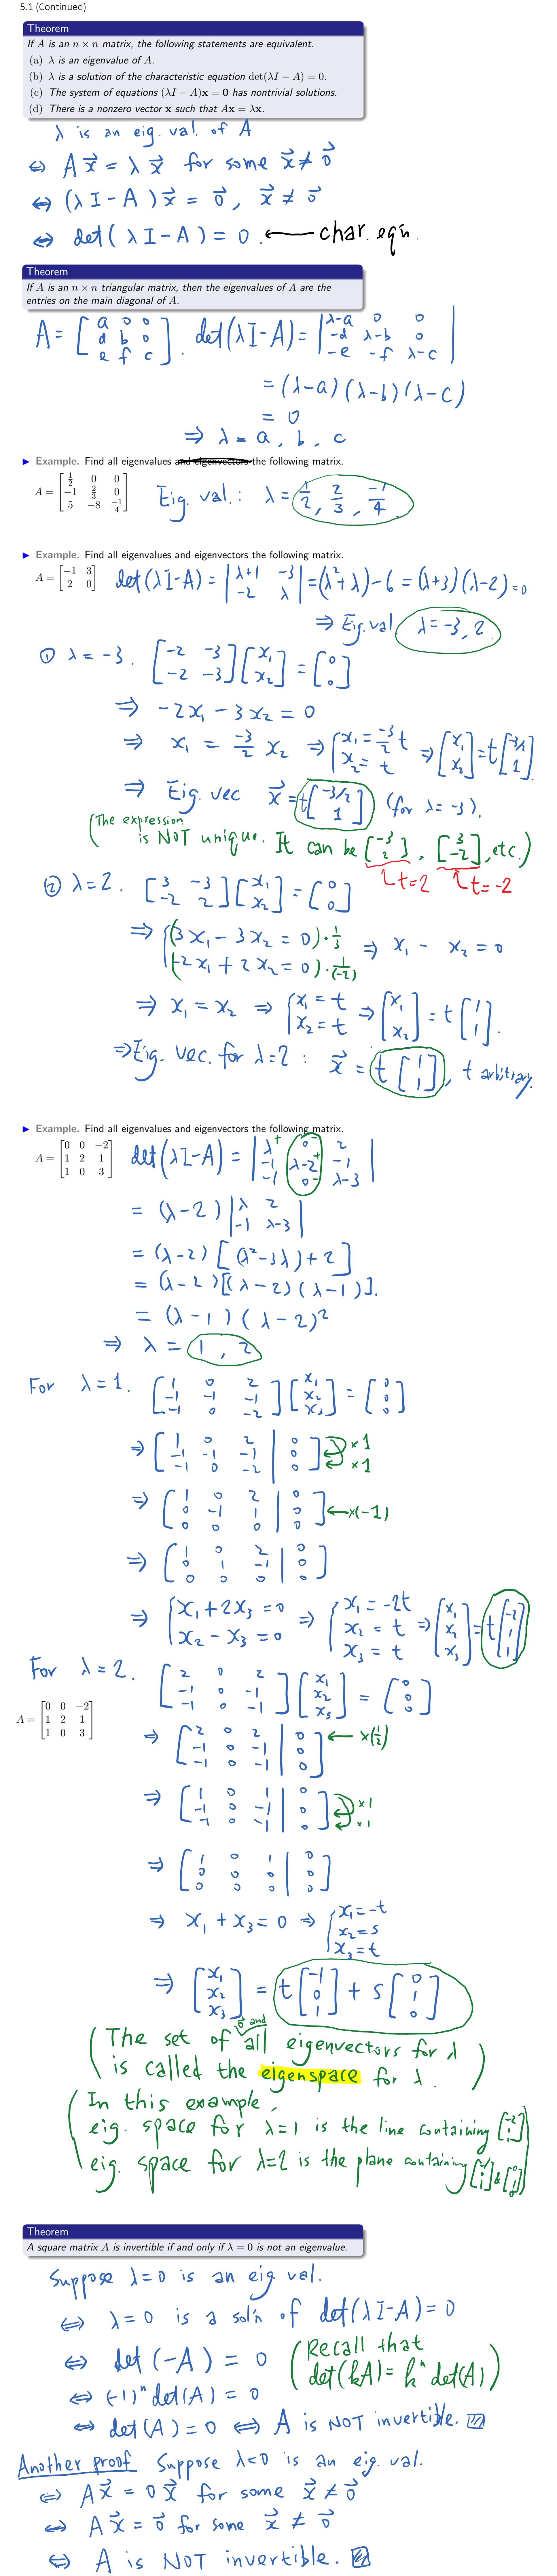 5.1 (Continued)
Theorem
If A is an n × n matrix, the following statements are equivalent.
(a) λ is an eigenvalue of A.
(b) λ is a solution of the characteristic equation det(λI − A) = 0.
(c) The system of equations (λI − A)x = 0 has nontrivial solutions.
(d) There is a nonzero vector x such that Ax = λx.
λ is an eig. val. of A
⇔ A x⃗ = λ x⃗ for some x⃗ ≠ 0⃗
⇔ (λI − A) x⃗ = 0⃗, x⃗ ≠ 0⃗
⇔ det(λI − A) = 0. ← char. eq'n.
Theorem
If A is an n × n triangular matrix, then the eigenvalues of A are the
entries on the main diagonal of A.
A = [a 0 0; d b 0; e f c]. det(λI − A) = |λ−a 0 0; −d λ−b 0; −e −f λ−c|
= (λ−a)(λ−b)(λ−c)
= 0
⇒ λ = a, b, c
▶ Example. Find all eigenvalues and eigenvectors the following matrix.
A = [1/2 0 0; −1 2/3 0; 5 −8 −1/4] Eig. val.: λ = 1/2, 2/3, −1/4
▶ Example. Find all eigenvalues and eigenvectors the following matrix.
A = [−1 3; 2 0] det(λI−A) = |λ+1 −3; −2 λ| = (λ²+λ)−6 = (λ+3)(λ−2) = 0
⇒ Eig. val. λ = −3, 2.
① λ = −3. [−2 −3; −2 −3][x₁; x₂] = [0; 0]
⇒ −2x₁ − 3x₂ = 0
⇒ x₁ = −3/2 x₂ ⇒ {x₁ = −3/2 t; x₂ = t ⇒ [x₁; x₂] = t[−3/2; 1]
⇒ Eig. vec x⃗ = t[−3/2; 1] (for λ = −3).
(The expression
is NOT unique. It can be [−3; 2], [3; −2], etc.)
t=2 t=-2
② λ = 2. [3 −3; −2 2][x₁; x₂] = [0; 0]
⇒ {(3x₁ − 3x₂ = 0)·1/3 ⇒ x₁ − x₂ = 0
(−2x₁ + 2x₂ = 0)·1/(−2)
⇒ x₁ = x₂ ⇒ {x₁ = t; x₂ = t ⇒ [x₁; x₂] = t[1; 1].
⇒ Eig. vec. for λ=2: x⃗ = t[1; 1], t arbitrary.
▶ Example. Find all eigenvalues and eigenvectors the following matrix.
A = [0 0 −2; 1 2 1; 1 0 3] det(λI−A) = |λ⁺ 0⁻ 2; −1 λ−2⁺ −1; −1 0⁻ λ−3|
= (λ−2)|λ 2; −1 λ−3|
= (λ−2)[(λ²−3λ)+2]
= (λ−2)[(λ−2)(λ−1)].
= (λ−1)(λ−2)²
⇒ λ = 1, 2
For λ=1. [1 0 2; −1 −1 −1; −1 0 −2][x₁; x₂; x₃] = [0; 0; 0]
⇒ [1 0 2 | 0; −1 −1 −1 | 0; −1 0 −2 | 0] ×1 ×1
⇒ [1 0 2 | 0; 0 −1 1 | 0; 0 0 0 | 0] ←×(−1)
⇒ [1 0 2 | 0; 0 1 −1 | 0; 0 0 0 | 0]
⇒ {x₁+2x₃ = 0; x₂ − x₃ = 0 ⇒ {x₁ = −2t; x₂ = t; x₃ = t ⇒ [x₁; x₂; x₃] = t[−2; 1; 1]
For λ=2. [2 0 2; −1 0 −1; −1 0 −1][x₁; x₂; x₃] = [0; 0; 0]
A = [0 0 −2; 1 2 1; 1 0 3]
⇒ [2 0 2 | 0; −1 0 −1 | 0; −1 0 −1 | 0] ← ×(1/2)
⇒ [1 0 1 | 0; −1 0 −1 | 0; −1 0 −1 | 0] ×1 ×1
⇒ [1 0 1 | 0; 0 0 0 | 0; 0 0 0 | 0]
⇒ x₁ + x₃ = 0 ⇒ {x₁ = −t; x₂ = s; x₃ = t
⇒ [x₁; x₂; x₃] = t[−1; 0; 1] + s[0; 1; 0]
(The set of 0⃗ and all eigenvectors for λ
is called the eigenspace for λ.)
(In this example,
eig. space for λ=1 is the line containing [−2; 1; 1]
eig. space for λ=2 is the plane containing
Theorem
A square matrix A is invertible if and only if λ = 0 is not an eigenvalue.
Suppose λ=0 is an eig. val.
⇔ λ=0 is a sol'n of det(λI−A)=0
⇔ det(−A) = 0 (Recall that
det(kA) = kⁿ det(A))
⇔ (−1)ⁿ det(A) = 0
⇔ det(A) = 0 ⇔ A is NOT invertible.
Another proof Suppose λ=0 is an eig. val.
⇔ A x⃗ = 0 x⃗ for some x⃗ ≠ 0⃗
⇔ A x⃗ = 0⃗ for some x⃗ ≠ 0⃗
⇔ A is NOT invertible.